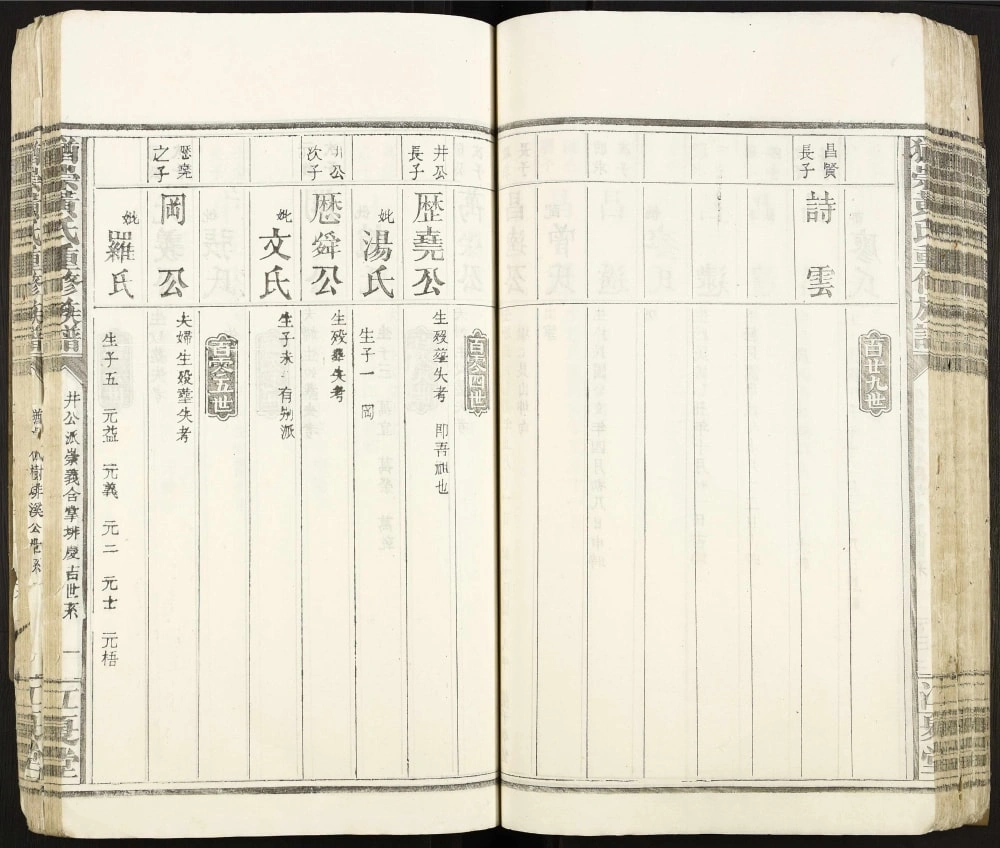 百廿九世
昌賢長子
詩雲
百零四世
井公長子
歷堯公
生歿塟失考 即吾祖也
妣湯氏
生子一 岡
井公次子
歷舜公
生歿塟失考
妣文氏
生子未 有别派
百零五世
歷堯之子
岡公
夫婦生歿塟失考
妣羅氏
生子五 元益 元義 元二 元士 元梧
猶崇黃氏重修族譜
井公派崇義合掌排慶吉世系
一
江夏堂